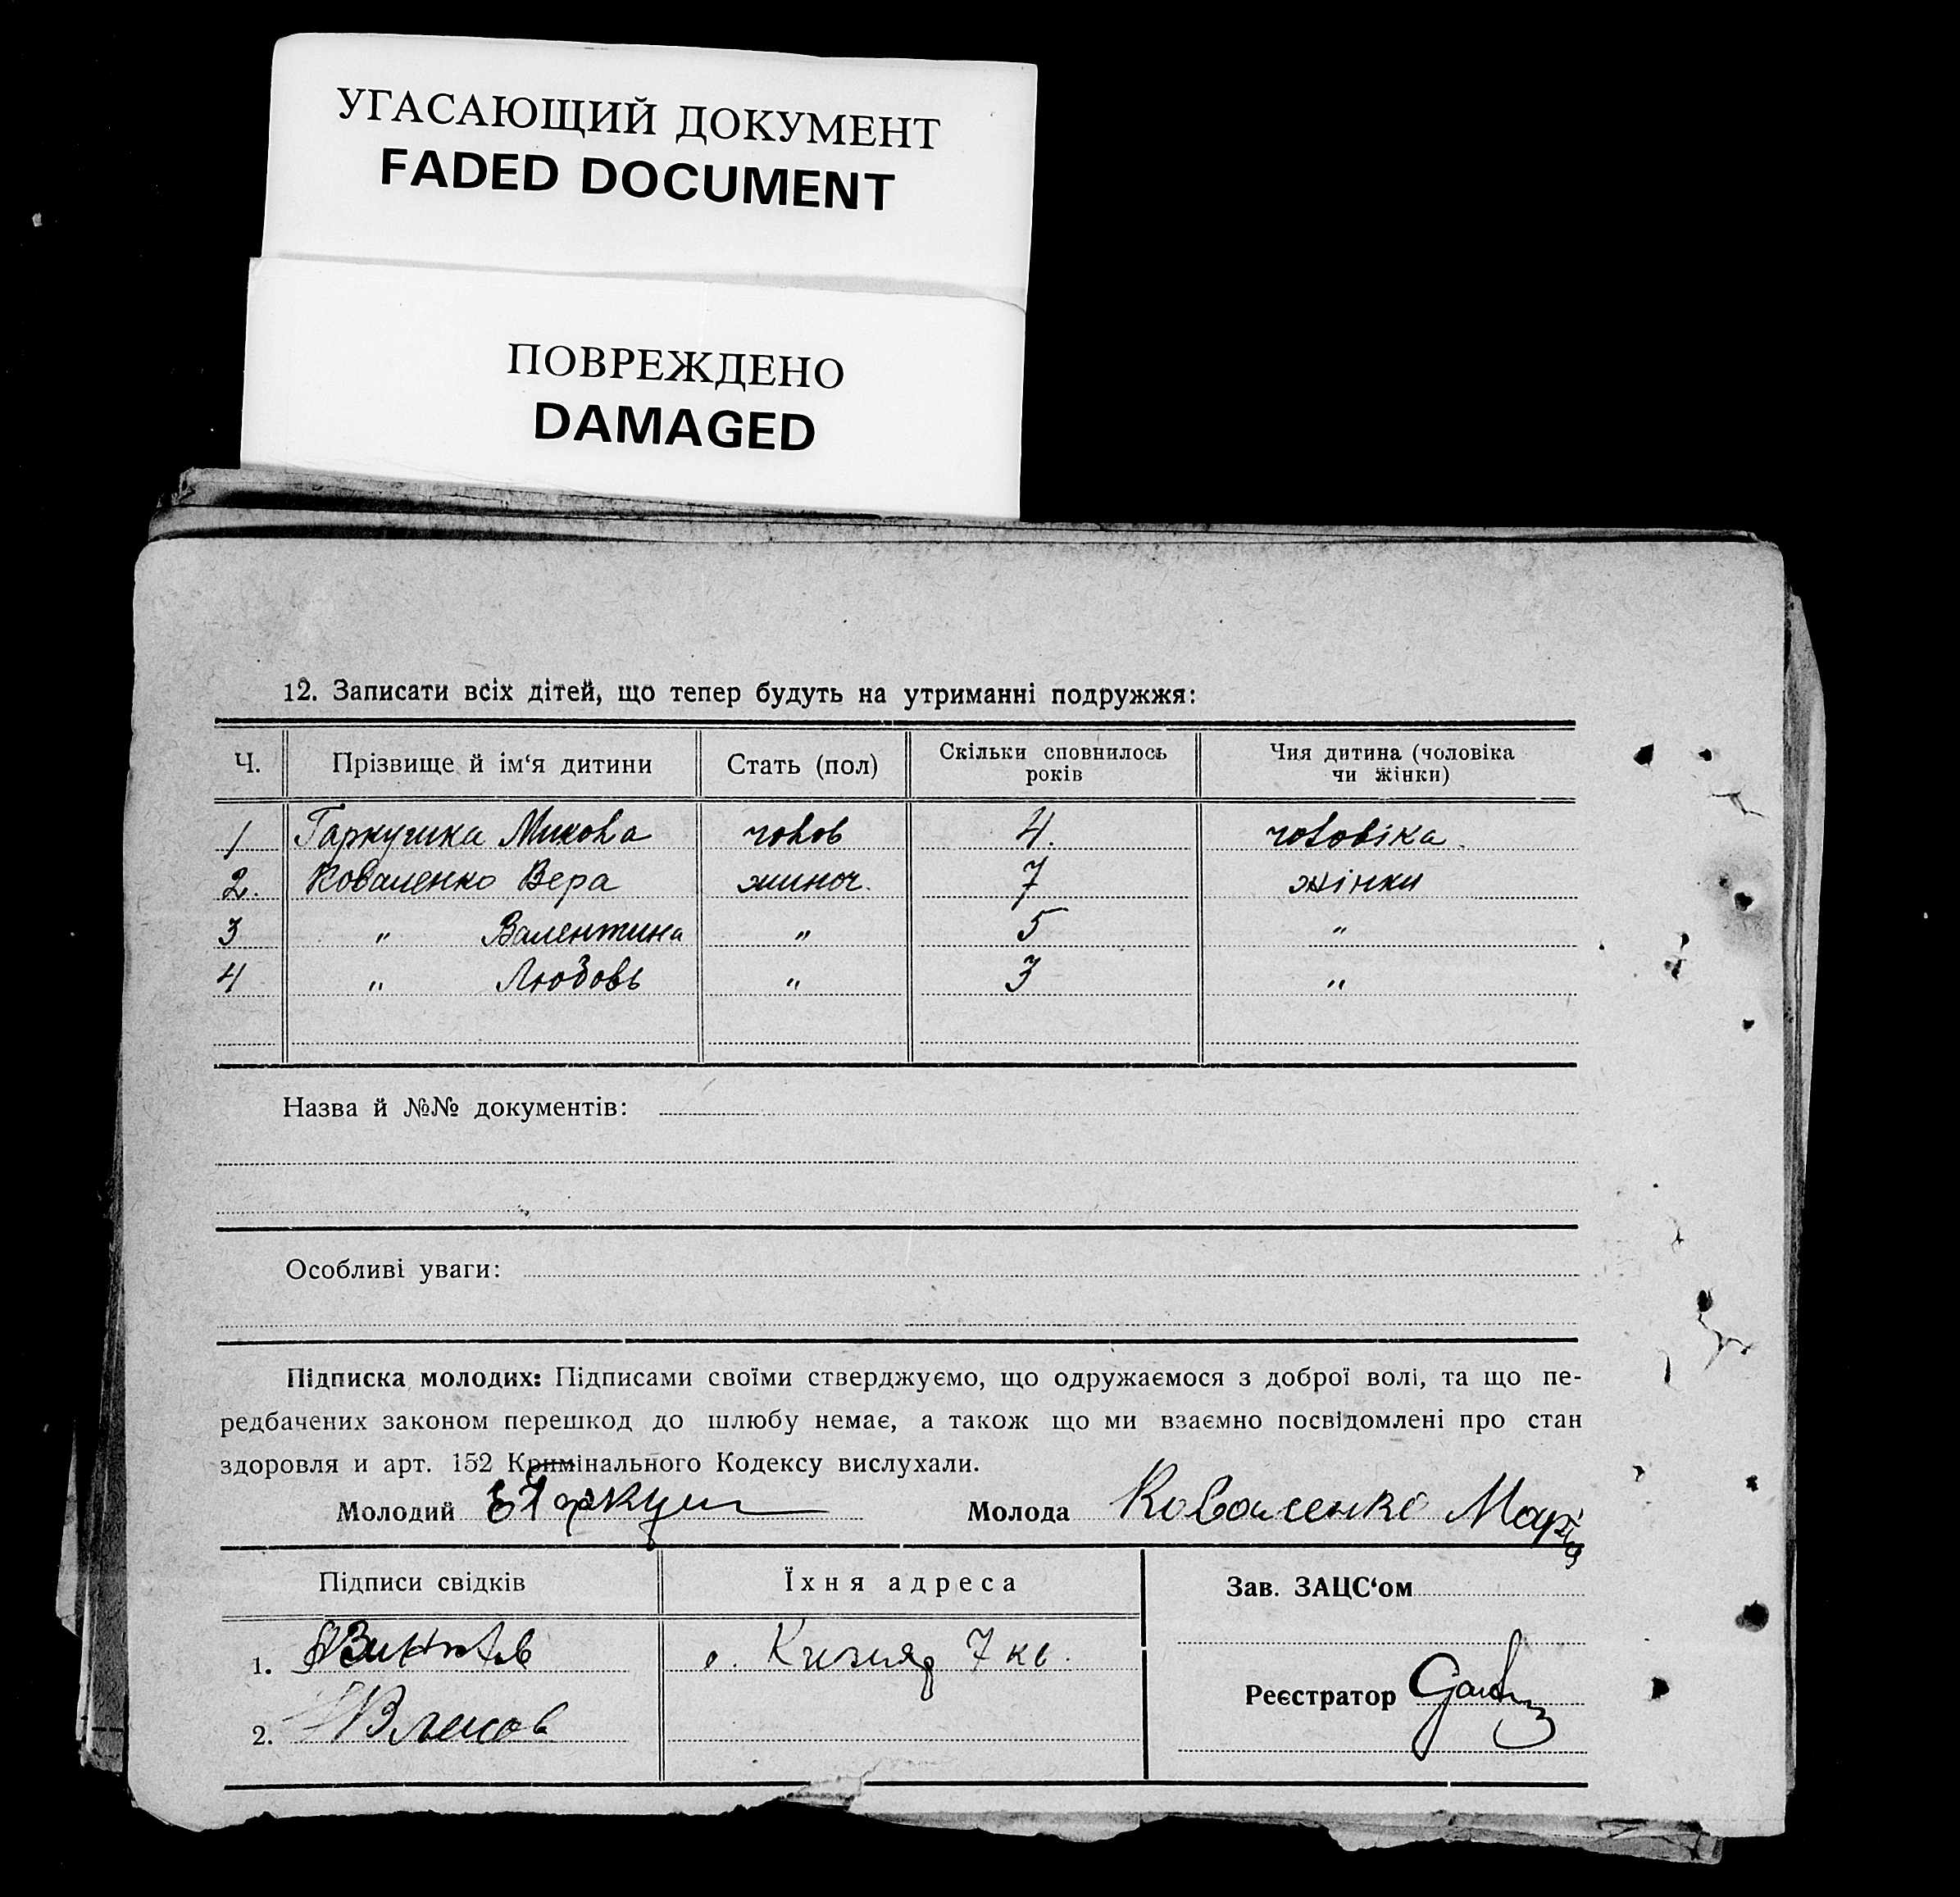 УГАСАЮЩИЙ ДОКУМЕНТ
FADED DOCUMENT
ПОВРЕЖДЕНО
DAMAGED
12. Записати всіх дітей, що тепер будуть на утриманні подружжя:
Ч. Прізвище й ім‘я дитини Стать (пол) Скільки сповнилось років Чия дитина (чоловіка чи жінки)
1 Гаркушка Микола чолов 4. чоловіка.
2. Коваленко Вера жиноч. 7 жінки
3 " Валентина " 5 "
4 " Любовь " 3 "
Назва й №№ документів:
Особливі уваги:
Підписка молодих: Підписами своїми стверджуємо, що одружаємося з доброї волі, та що пе-
редбачених законом перешкод до шлюбу немає, а також що ми взаємно посвідомлені про стан
здоровля и арт. 152 Кримінального Кодексу вислухали.
Молодий Молода Коваленко Марія
Підписи свідків Їхня адреса Зав. ЗАЦС‘ом
1. 7 кв.
Реєстратор
2. Власов